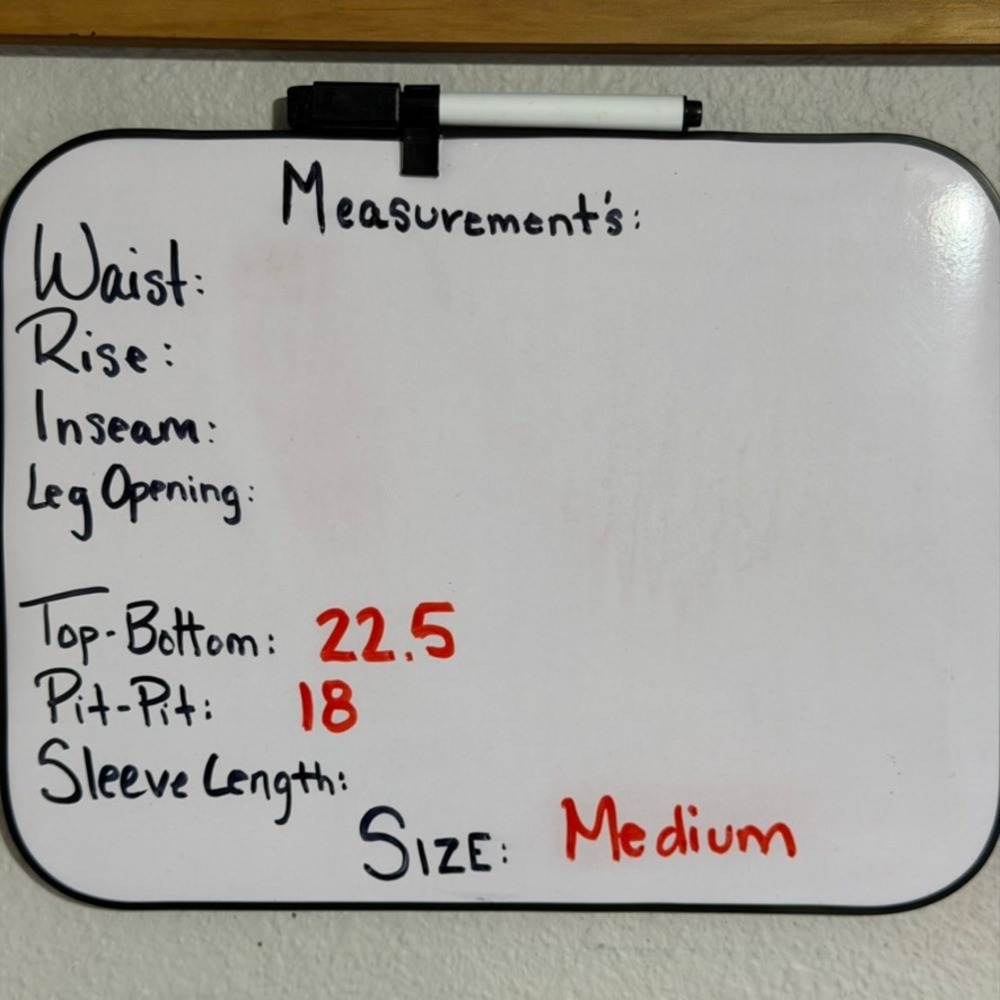 Measurement's:
Waist:
Rise:
Inseam:
Leg Opening:
Top-Bottom: 22.5
Pit-Pit: 18
Sleeve Length:
SIZE: Medium